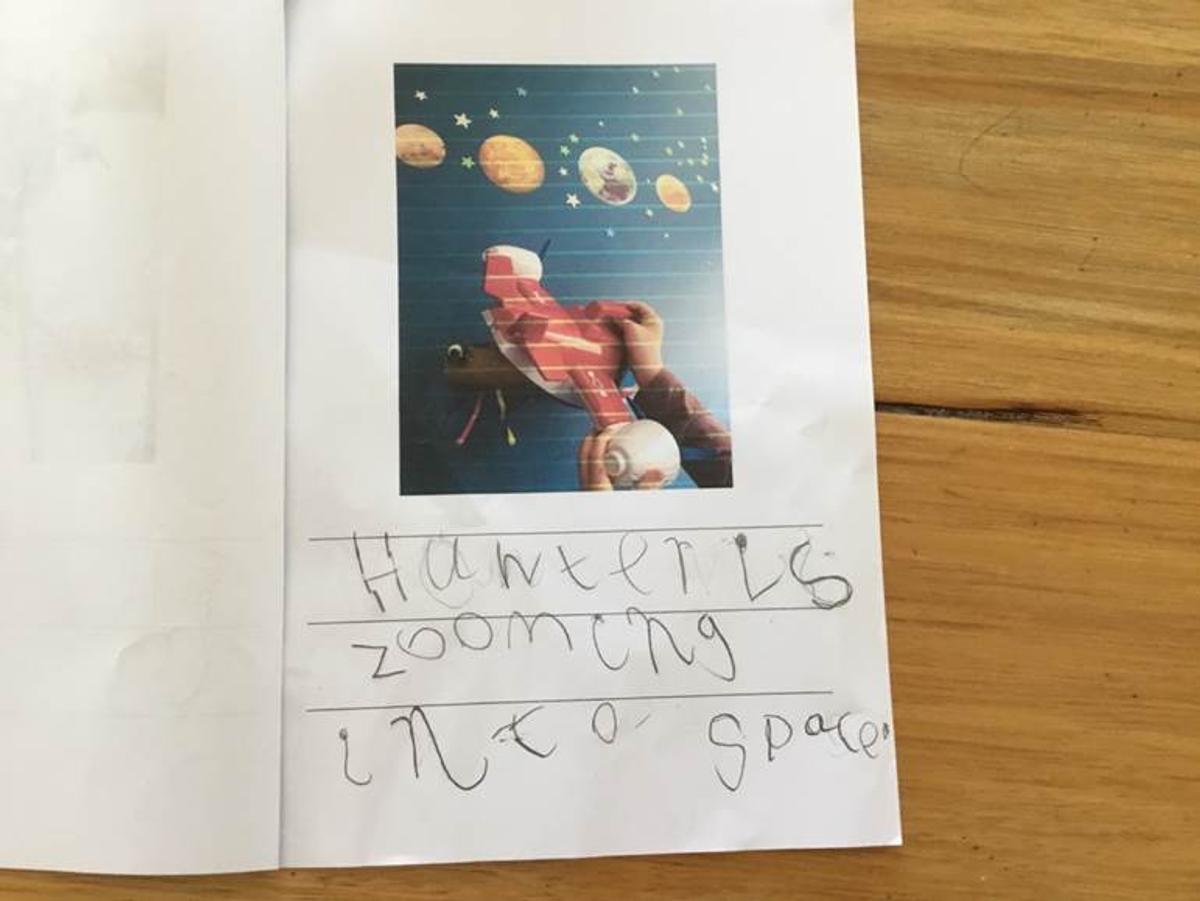 Hunter is
zooming
into space.